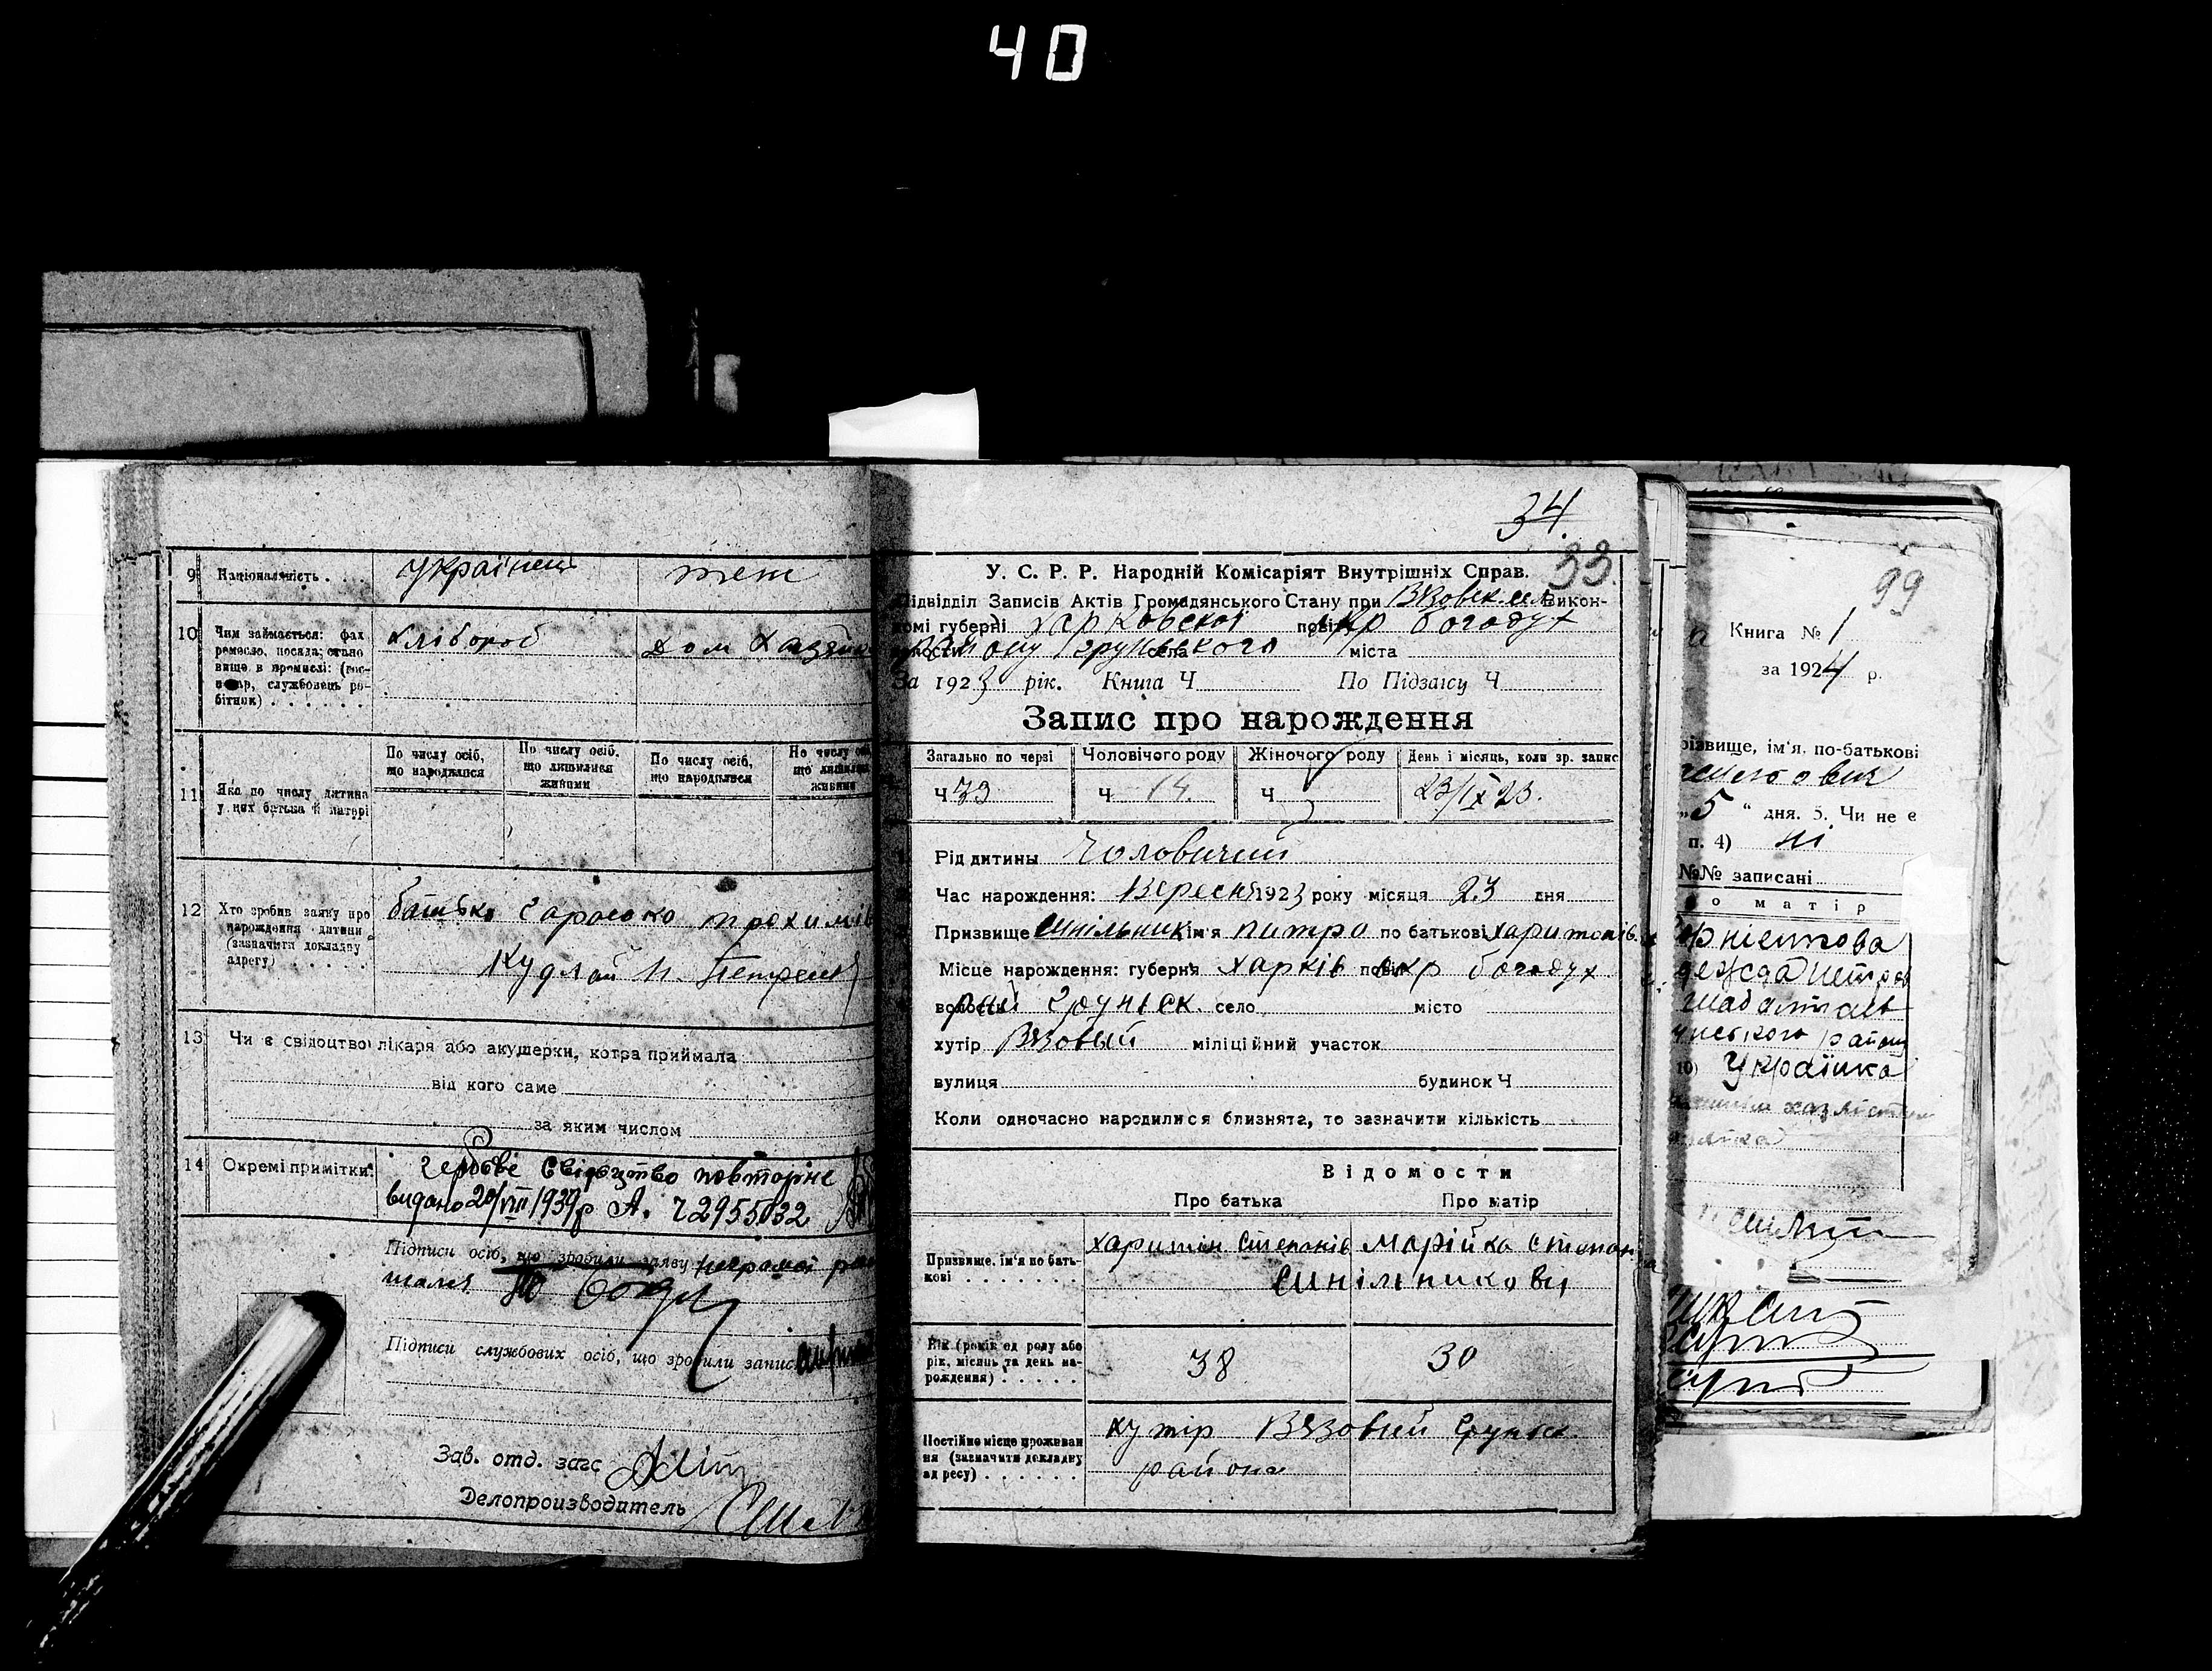 40
9 Національність . . . українець теж
10 Чим займається: фах
ремесло, посада, стано
вище в промислі: (гос-
подар, службовець ро-
бітник) . . . . . .
хлібороб
дом хазяйка
11 Яка по числу дитина
у них батька й матері
По числу осіб,
що народилися
По числу осіб,
що лишилися
живими
По числу осіб,
що народилися
По числу
що лишил
живими
12 Хто зробив заяву про
нарождення дитини
(зазначити докладну
адресу) . . . . .
батько
Кудлай
13 Чи є свідоцтво лікаря або акушерки, котра приймала
від кого саме
за яким числом
14 Окремі примітки:
гербове свідоцтво повторне
видано 20/VIII 1939р А. 72955032
Підписи осіб, що зробили заяву
Підписи службових осіб, що зробили запис
Зав. отд. загс
Делопроизводитель
34
33
У. С. Р. Р. Народній Комісаріят Внутрішніх Справ.
Підвідділ Записів Актів Громадянського Стану при Вязовск. сел Викон-
комі губерні Харковскоі повіт окр богодух
волости району Грунського села міста
За 1923 рік. Книга Ч По Підзагсу Ч
Запис про нарождення
Загально по черзі Чоловічого роду Жіночого роду День і місяць, коли зр. запис
Ч 33 Ч 14. Ч 23/IX 23.
Рід дитины Чоловичий
Час нарождення: Вересня 1923 року місяця 23 дня
Призвище Синільник ім'я питро по батькові харитонів.
Місце нарождення: губерня Харків повіт окр богодух
волость рай Груньск. село місто
хутір Вязовый міліційний участок
вулиця будинок Ч
Коли одночасно народилися близнята, то зазначити кількість
Відомости
Про батька Про матір
Призвище, ім'я по бать-
кові . . . . . . .
харитін Степанів Марійка степан
Синільникови
Вік (років од роду або
рік, місяць та день на-
рождення) . . . . .
38 30
Постійне місце проживан
ня (зазначити докладну
адресу) . . . . . .
хутір Вязовый Груньск.
района
99
Книга № 1
за 1924 р.
різвище, ім'я, по-батькові
„5“ дня. 5. Чи не є
п. 4) ні
№№ записані
о матір
10) Українка